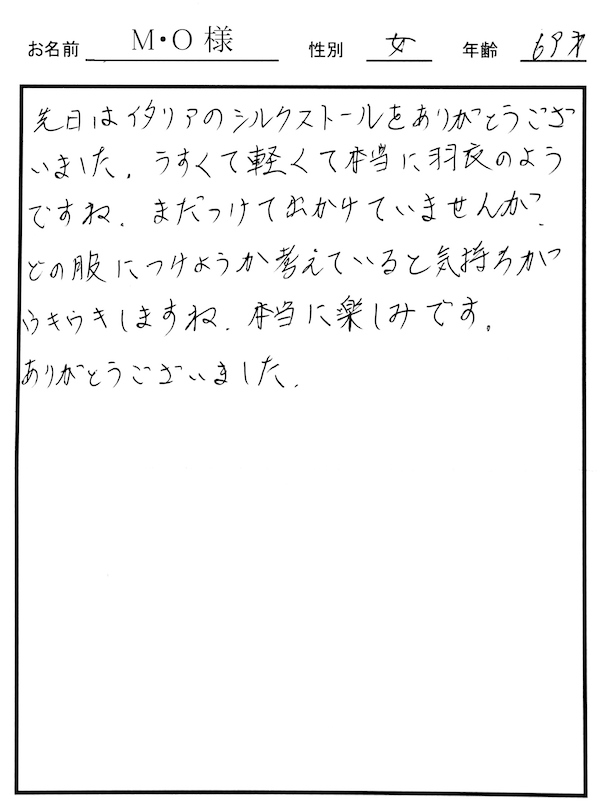 お名前 M・O 様 性別 女 年齢 69才
先日はイタリアのシルクストールをありがとうござ
いました。うすくて軽くて本当に羽衣のよう
ですね。まだつけて出かけていませんが、
どの服につけようか考えていると気持ちが
ウキウキしますね。本当に楽しみです。
ありがとうございました。